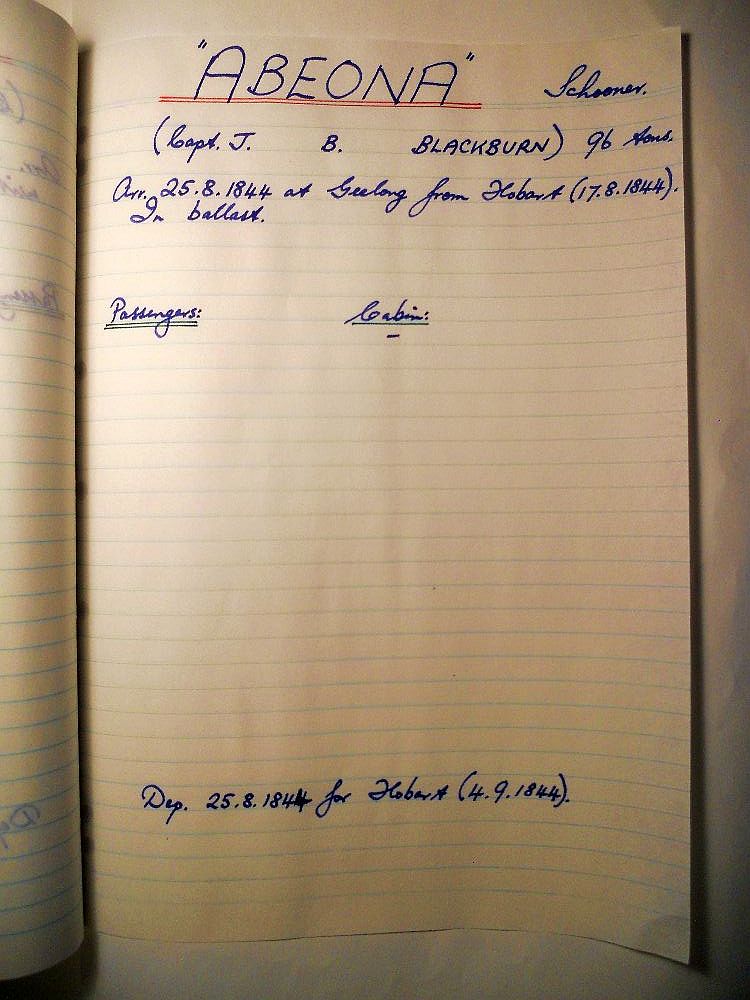 "ABEONA" Schooner.
(Capt. J. B. BLACKBURN) 96 tons.
Arr. 25.8.1844 at Geelong from Hobart (17.8.1844).
In ballast.
Passengers: Cabin:
–
Dep. 25.8.1844 for Hobart (4.9.1844).